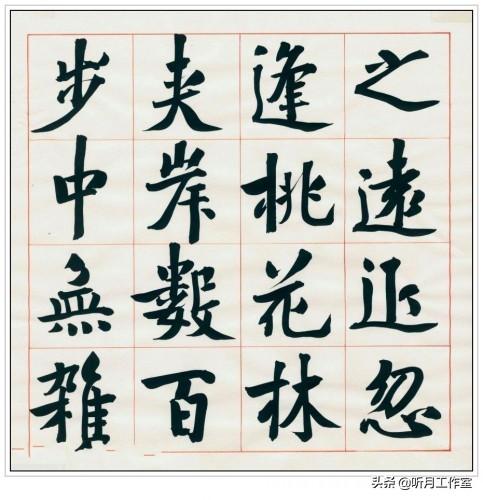 之遠近忽
逢桃花林
夾岸數百
步中無雜
头条 @听月工作室